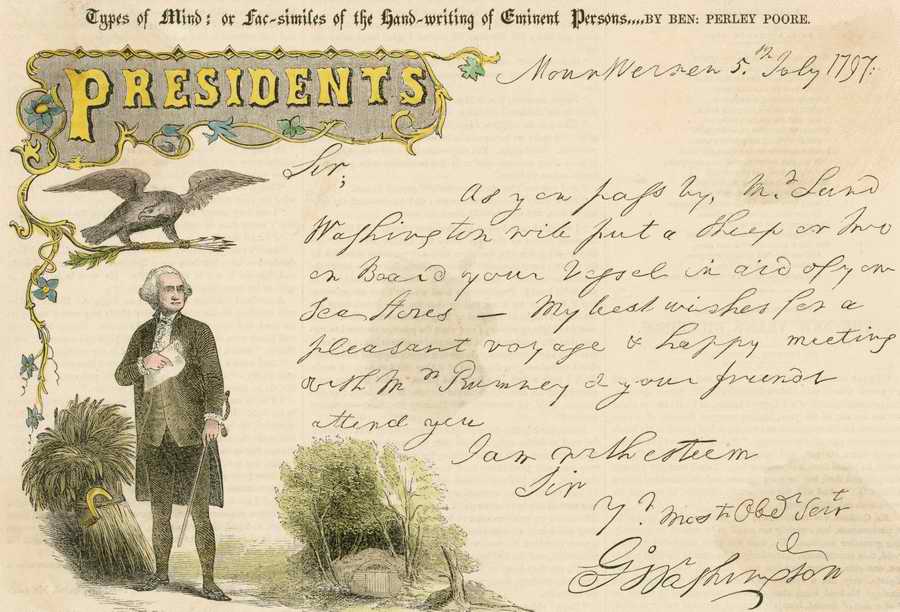 Types of Mind; or Fac-similes of the Hand-writing of Eminent Persons,,,,BY BEN: PERLEY POORE.
PRESIDENTS
Mount Vernon 5.th July 1797.
Sir;
As you pass by, Mr Lund
Washington will put a Sheep or two
on Board your Vessel in aid of your
Sea Stores — My best wishes for a
pleasant voyage & happy meeting
with Mrs Rumney & your friends
attend you
I am with esteem
Sir
Yr. most Obedr Servt
Go Washington